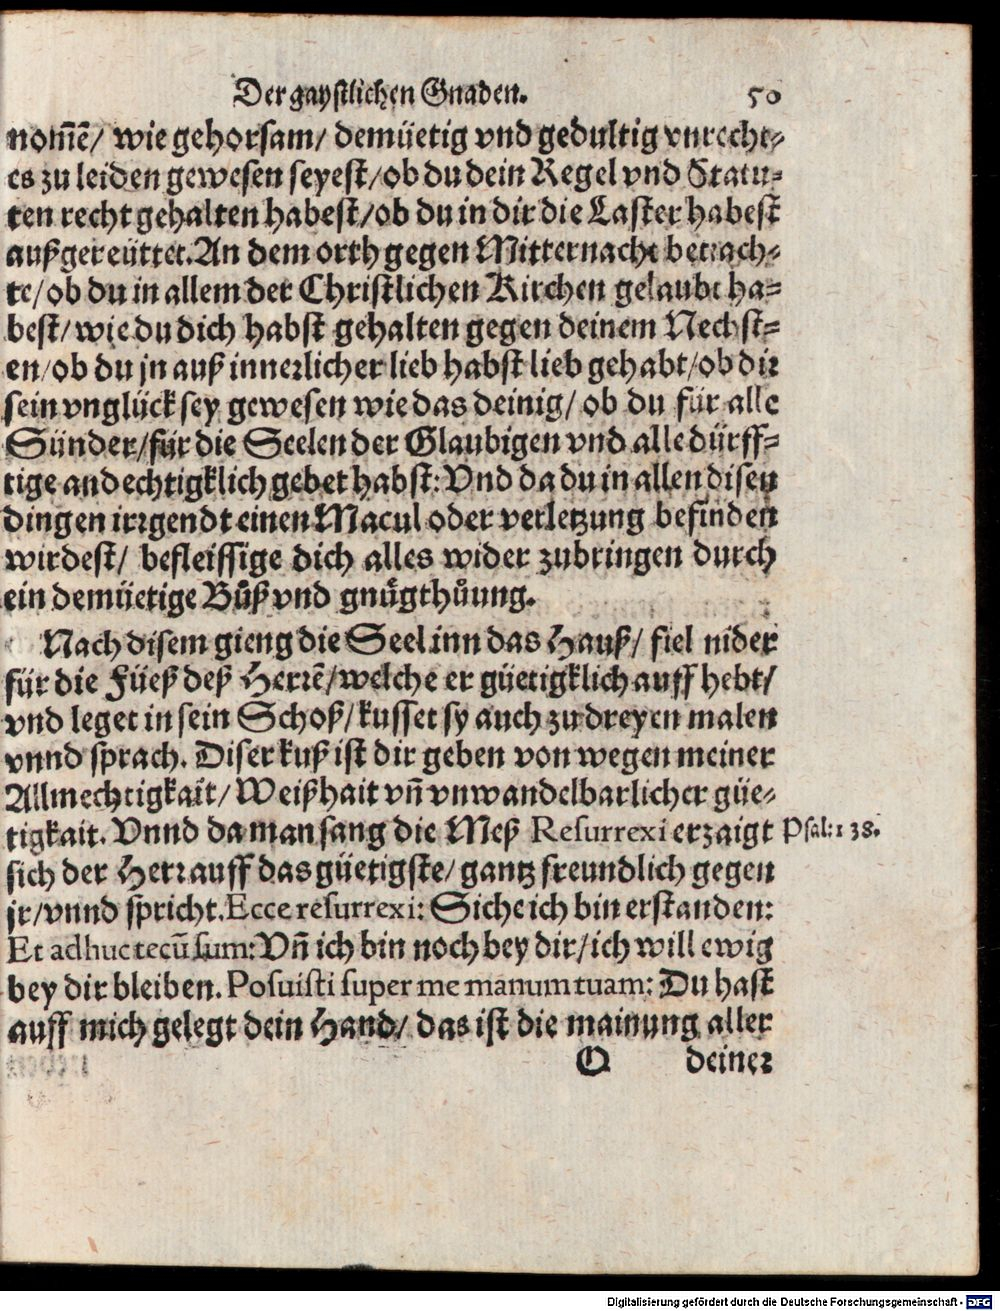 Der gaystlichen Gnaden. 50
nom̃ẽ/ wie gehorsam/ demüetig vnd gedultig vnrecht-
es zu leiden gewesen seyest/ ob du dein Regel vnd Statu-
ten recht gehalten habest/ ob du in dir die Laster habest
außgereüttet. An dem orth gegen Mitternacht betrach-
te/ ob du in allem der Christlichen Kirchen gelaubt ha-
best/ wie du dich habst gehalten gegen deinem Nechst-
en/ ob du jn auß innerlicher lieb habst lieb gehabt/ ob dir
sein vnglück sey gewesen wie das deinig/ ob du für alle
Sünder/ für die Seelen der Glaubigen vnd alle dürff-
tige andechtigklich gebet habst: Vnd da du in allen disen
dingen irrgendt einen Macul oder verletzung befinden
wirdest/ befleissige dich alles wider zubringen durch
ein demüetige Bůß vnd gnůgthůung.
Nach disem gieng die Seel inn das Hauß/ fiel nider
für die Füeß deß Herrẽ/ welche er güetigklich auff hebt/
vnd leget in sein Schoß/ kusset sy auch zu dreyen malen
vnnd sprach. Diser kuß ist dir geben von wegen meiner
Allmechtigkait/ Weißhait vñ vnwandelbarlicher güe-
tigkait. Vnnd da man sang die Meß Resurrexi erzaigt
Psal: 138.
sich der Herr auff das güetigste/ gantz freundlich gegen
jr/ vnnd spricht. Ecce resurrexi: Siche ich bin erstanden:
Et adhuc tecũ sum: Vñ ich bin noch bey dir/ ich will ewig
bey dir bleiben. Posuisti super me manum tuam: Du hast
auff mich gelegt dein Hand/ das ist die mainung aller
O deiner
Digitalisierung gefördert durch die Deutsche Forschungsgemeinschaft - DFG